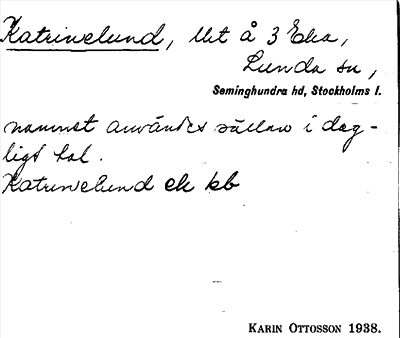 Katrinelund, llt å 3 Eka,
Lunda sn,
Seminghundra hd, Stockholms l.
namnet användes sällan i dag-
ligt tal.
Katrinelund ek kb
KARIN OTTOSSON 1938.